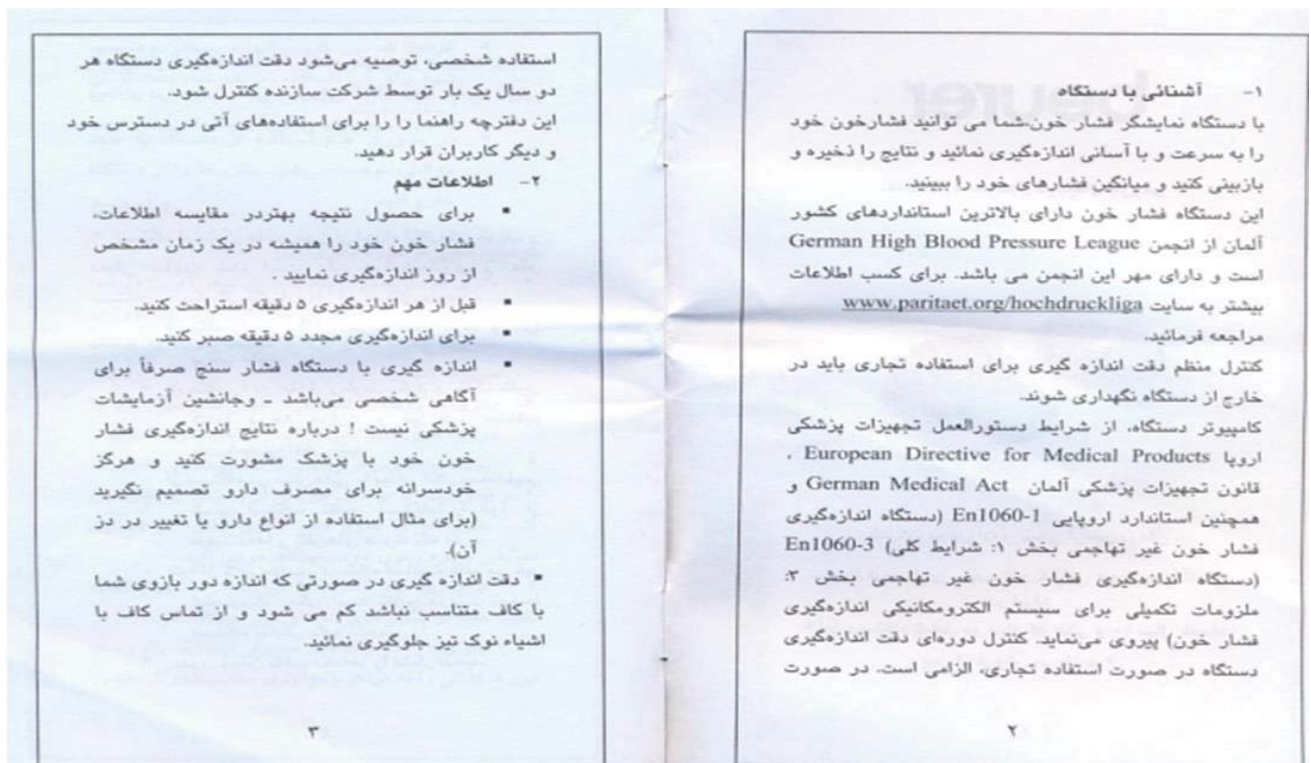 ۱- آشنائی با دستگاه
با دستگاه نمایشگر فشار خون،شما می توانید فشارخون خود
را به سرعت و با آسانی اندازه‌گیری نمائید و نتایج را ذخیره و
بازبینی کنید و میانگین فشارهای خود را ببینید.
این دستگاه فشار خون دارای بالاترین استانداردهای کشور
آلمان از انجمن German High Blood Pressure League
است و دارای مهر این انجمن می باشد. برای کسب اطلاعات
بیشتر به سایت www.paritaet.org/hochdruckliga
مراجعه فرمائید.
کنترل منظم دقت اندازه گیری برای استفاده تجاری باید در
خارج از دستگاه نگهداری شوند.
کامپیوتر دستگاه، از شرایط دستورالعمل تجهیزات پزشکی
اروپا European Directive for Medical Products ،
قانون تجهیزات پزشکی آلمان German Medical Act و
همچنین استاندارد اروپایی En1060-1 (دستگاه اندازه‌گیری
فشار خون غیر تهاجمی بخش ۱: شرایط کلی) En1060-3
(دستگاه اندازه‌گیری فشار خون غیر تهاجمی بخش ۳:
ملزومات تکمیلی برای سیستم الکترومکانیکی اندازه‌گیری
فشار خون) پیروی می‌نماید. کنترل دوره‌ای دقت اندازه‌گیری
دستگاه در صورت استفاده تجاری، الزامی است. در صورت
۲
استفاده شخصی، توصیه می‌شود دقت اندازه‌گیری دستگاه هر
دو سال یک بار توسط شرکت سازنده کنترل شود.
این دفترچه راهنما را را برای استفاده‌های آتی در دسترس خود
و دیگر کاربران قرار دهید.
۲- اطلاعات مهم
▪ برای حصول نتیجه بهتردر مقایسه اطلاعات،
فشار خون خود را همیشه در یک زمان مشخص
از روز اندازه‌گیری نمایید .
▪ قبل از هر اندازه‌گیری ۵ دقیقه استراحت کنید.
▪ برای اندازه‌گیری مجدد ۵ دقیقه صبر کنید.
▪ اندازه گیری با دستگاه فشار سنج صرفاً برای
آگاهی شخصی می‌باشد ـ وجانشین آزمایشات
پزشکی نیست ! درباره نتایج اندازه‌گیری فشار
خون خود با پزشک مشورت کنید و هرگز
خودسرانه برای مصرف دارو تصمیم نگیرید
(برای مثال استفاده از انواع دارو یا تغییر در دز
آن).
▪ دقت اندازه گیری در صورتی که اندازه دور بازوی شما
با کاف متناسب نباشد کم می شود و از تماس کاف با
اشیاء نوک تیز جلوگیری نمائید.
۳